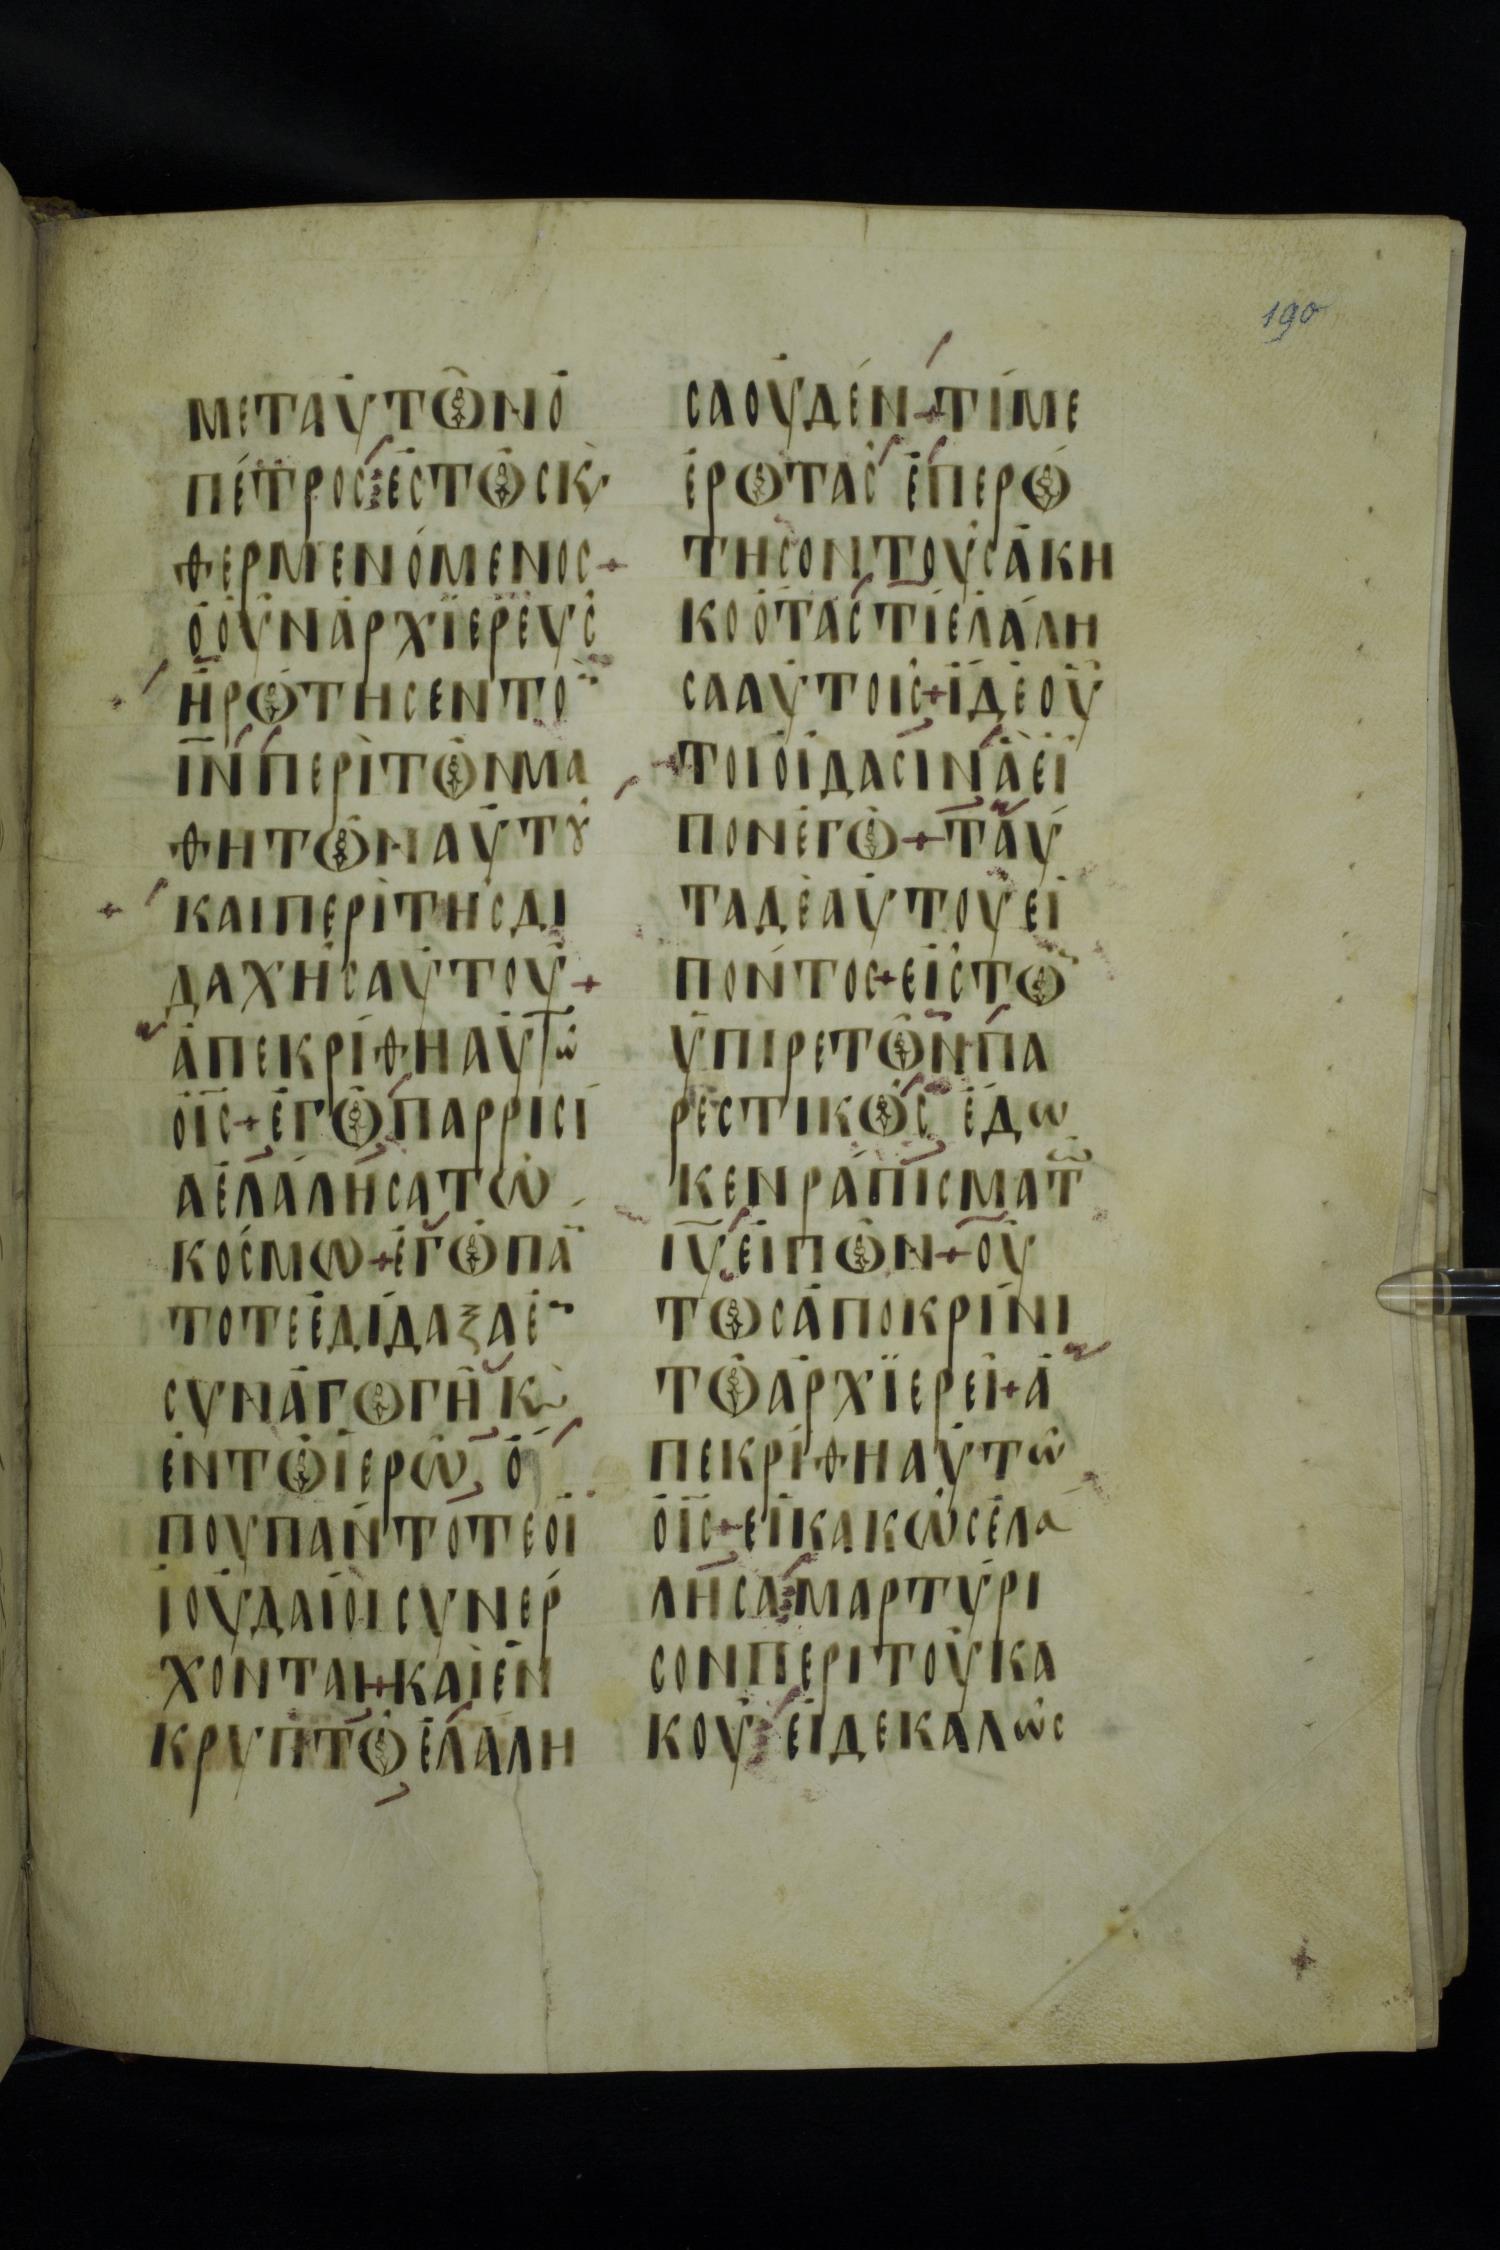 190
ΜΕΤΑΥΤΩΝΟ
ΠΕΤΡΟΣΕΣΤΩΣΚ,
ΘΕΡΜΕΝΟΜΕΝΟΣ+
ΟΟΥΝΑΡΧΪΕΡΕΥΣ
ΗΡΩΤΗΣΕΝΤΟ
ΙΝΠΕΡΙΤΩΝΜΑ
ΘΗΤΩΝΑΥΤȢ
ΚΑΙΠΕΡΙΤΗΣΔΙ
ΔΑΧΗΣΑΥΤΟΥ+
ΑΠΕΚΡΙΘΗΑΥΤΩ
ΟΙΣ+ΕΓΩΠΑΡΡΙΣΙ
ΑΕΛΑΛΗΣΑΤΩ
ΚΟΣΜΩ+ΕΓΩΠΑ
ΤΟΤΕΕΔΙΔΑΞΑΕ
ΣΥΝΑΓΩΓΗΚ
ΕΝΤΩΙΕΡΩ, Ο
ΠΟΥΠΑΝΤΟΤΕΟΙ
ΙΟΥΔΑΙΟΙΣΥΝΕΡ
ΧΟΝΤΑΙ+ΚΑΙΕΝ
ΚΡΥΠΤΩΕΛΑΛΗ
ΣΑΟΥΔΕΝ+ΤΙΜΕ
ΕΡΩΤΑΣ ΕΠΕΡΩ
ΤΗΣΟΝΤΟΥΣΑΚΗ
ΚΟΟΤΑΣΤΙΕΛΑΛΗ
ΣΑΑΥΤΟΙΣ+ΙΔΕΟΥ
ΤΟΙΟΙΔΑΣΙΝΑΕΙ
ΠΟΝΕΓΩ+ΤΑΥ
ΤΑΔΕΑΥΤΟΥΕΙ
ΠΟΝΤΟΣ+ΕΙΣΤΩ
ΥΠΙΡΕΤΩΝΠΑ
ΡΕΣΤΙΚΩΣ ΕΔΩ
ΚΕΝΡΑΠΙΣΜΑΤΩ
ΙΥΕΙΠΩΝ+ΟΥ
ΤΩΣΑΠΟΚΡΙΝΙ
ΤΩΑΡΧΪΕΡΕΙ+Α
ΠΕΚΡΙΘΗΑΥΤΩ
ΟΙΣ+ΕΙΚΑΚΩΣΕΛΑ
ΛΗΣΑΜΑΡΤΥΡΙ
ΣΟΝΠΕΡΙΤΟΥΚΑ
ΚΟΥ ΕΙΔΕΚΑΛΩΣ